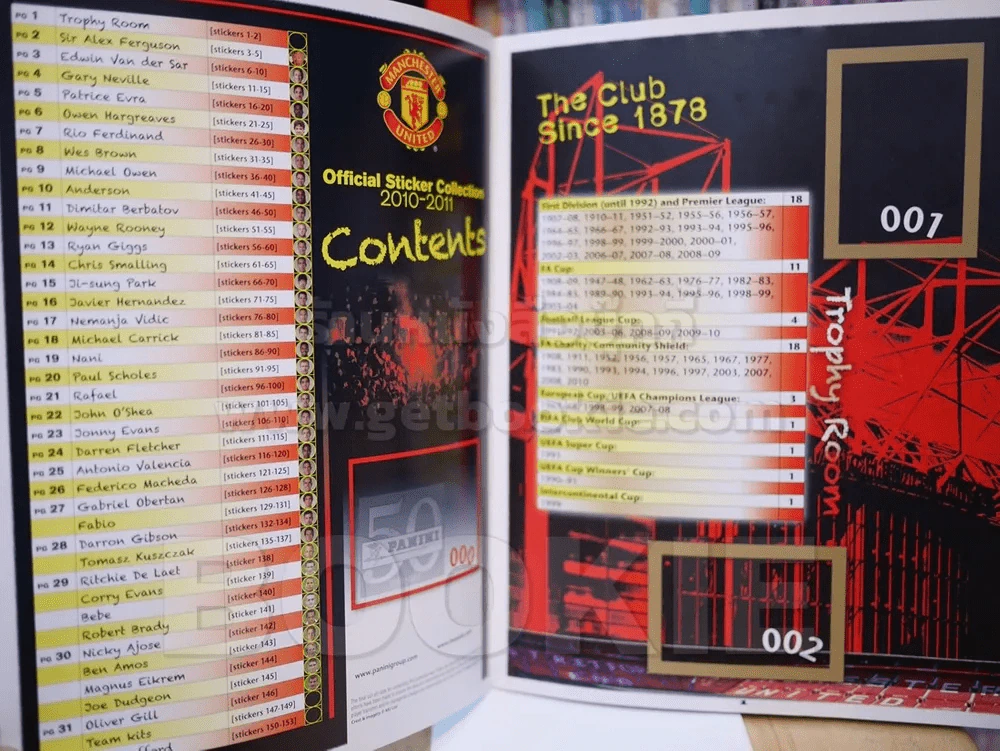 PG 1 Trophy Room [stickers 1-2]
PG 2 Sir Alex Ferguson [stickers 3-5]
PG 3 Edwin Van der Sar [stickers 6-10]
PG 4 Gary Neville [stickers 11-15]
PG 5 Patrice Evra [stickers 16-20]
PG 6 Owen Hargreaves [stickers 21-25]
PG 7 Rio Ferdinand [stickers 26-30]
PG 8 Wes Brown [stickers 31-35]
PG 9 Michael Owen [stickers 36-40]
PG 10 Anderson [stickers 41-45]
PG 11 Dimitar Berbatov [stickers 46-50]
PG 12 Wayne Rooney [stickers 51-55]
PG 13 Ryan Giggs [stickers 56-60]
PG 14 Chris Smalling [stickers 61-65]
PG 15 Ji-sung Park [stickers 66-70]
PG 16 Javier Hernandez [stickers 71-75]
PG 17 Nemanja Vidic [stickers 76-80]
PG 18 Michael Carrick [stickers 81-85]
PG 19 Nani [stickers 86-90]
PG 20 Paul Scholes [stickers 91-95]
PG 21 Rafael [stickers 96-100]
PG 22 John O'Shea [stickers 101-105]
PG 23 Jonny Evans [stickers 106-110]
PG 24 Darren Fletcher [stickers 111-115]
PG 25 Antonio Valencia [stickers 116-120]
PG 26 Federico Macheda [stickers 121-125]
PG 27 Gabriel Obertan [stickers 126-128]
Fabio [stickers 129-131]
PG 28 Darron Gibson [stickers 132-134]
Tomasz Kuszczak [stickers 135-137]
PG 29 Ritchie De Laet [sticker 138]
Corry Evans [sticker 139]
Bebe [sticker 140]
Robert Brady [sticker 141]
PG 30 Nicky Ajose [sticker 142]
Ben Amos [sticker 143]
Magnus Eikrem [sticker 144]
Joe Dudgeon [sticker 145]
PG 31 Oliver Gill [sticker 146]
Team kits [stickers 147-149]
[stickers 150-153]
MANCHESTER
UNITED
Official Sticker Collection
2010-2011
Contents
50
PANINI
000
www.paninigroup.com
The Club
Since 1878
First Division (until 1992) and Premier League: 18
1907-08, 1910-11, 1951-52, 1955-56, 1956-57,
1964-65, 1966-67, 1992-93, 1993-94, 1995-96,
1996-97, 1998-99, 1999-2000, 2000-01,
2002-03, 2006-07, 2007-08, 2008-09
FA Cup: 11
1908-09, 1947-48, 1962-63, 1976-77, 1982-83,
1984-85, 1989-90, 1993-94, 1995-96, 1998-99,
2003-04
Football League Cup: 4
1991-92, 2005-06, 2008-09, 2009-10
FA Charity/Community Shield: 18
1908, 1911, 1952, 1956, 1957, 1965, 1967, 1977,
1983, 1990, 1993, 1994, 1996, 1997, 2003, 2007,
2008, 2010
European Cup/UEFA Champions League: 3
1967-68, 1998-99, 2007-08
FIFA Club World Cup: 1
UEFA Super Cup: 1
1991
UEFA Cup Winners' Cup: 1
1990-91
Intercontinental Cup: 1
1999
Trophy Room
001
002
UNITED
BOOKIE